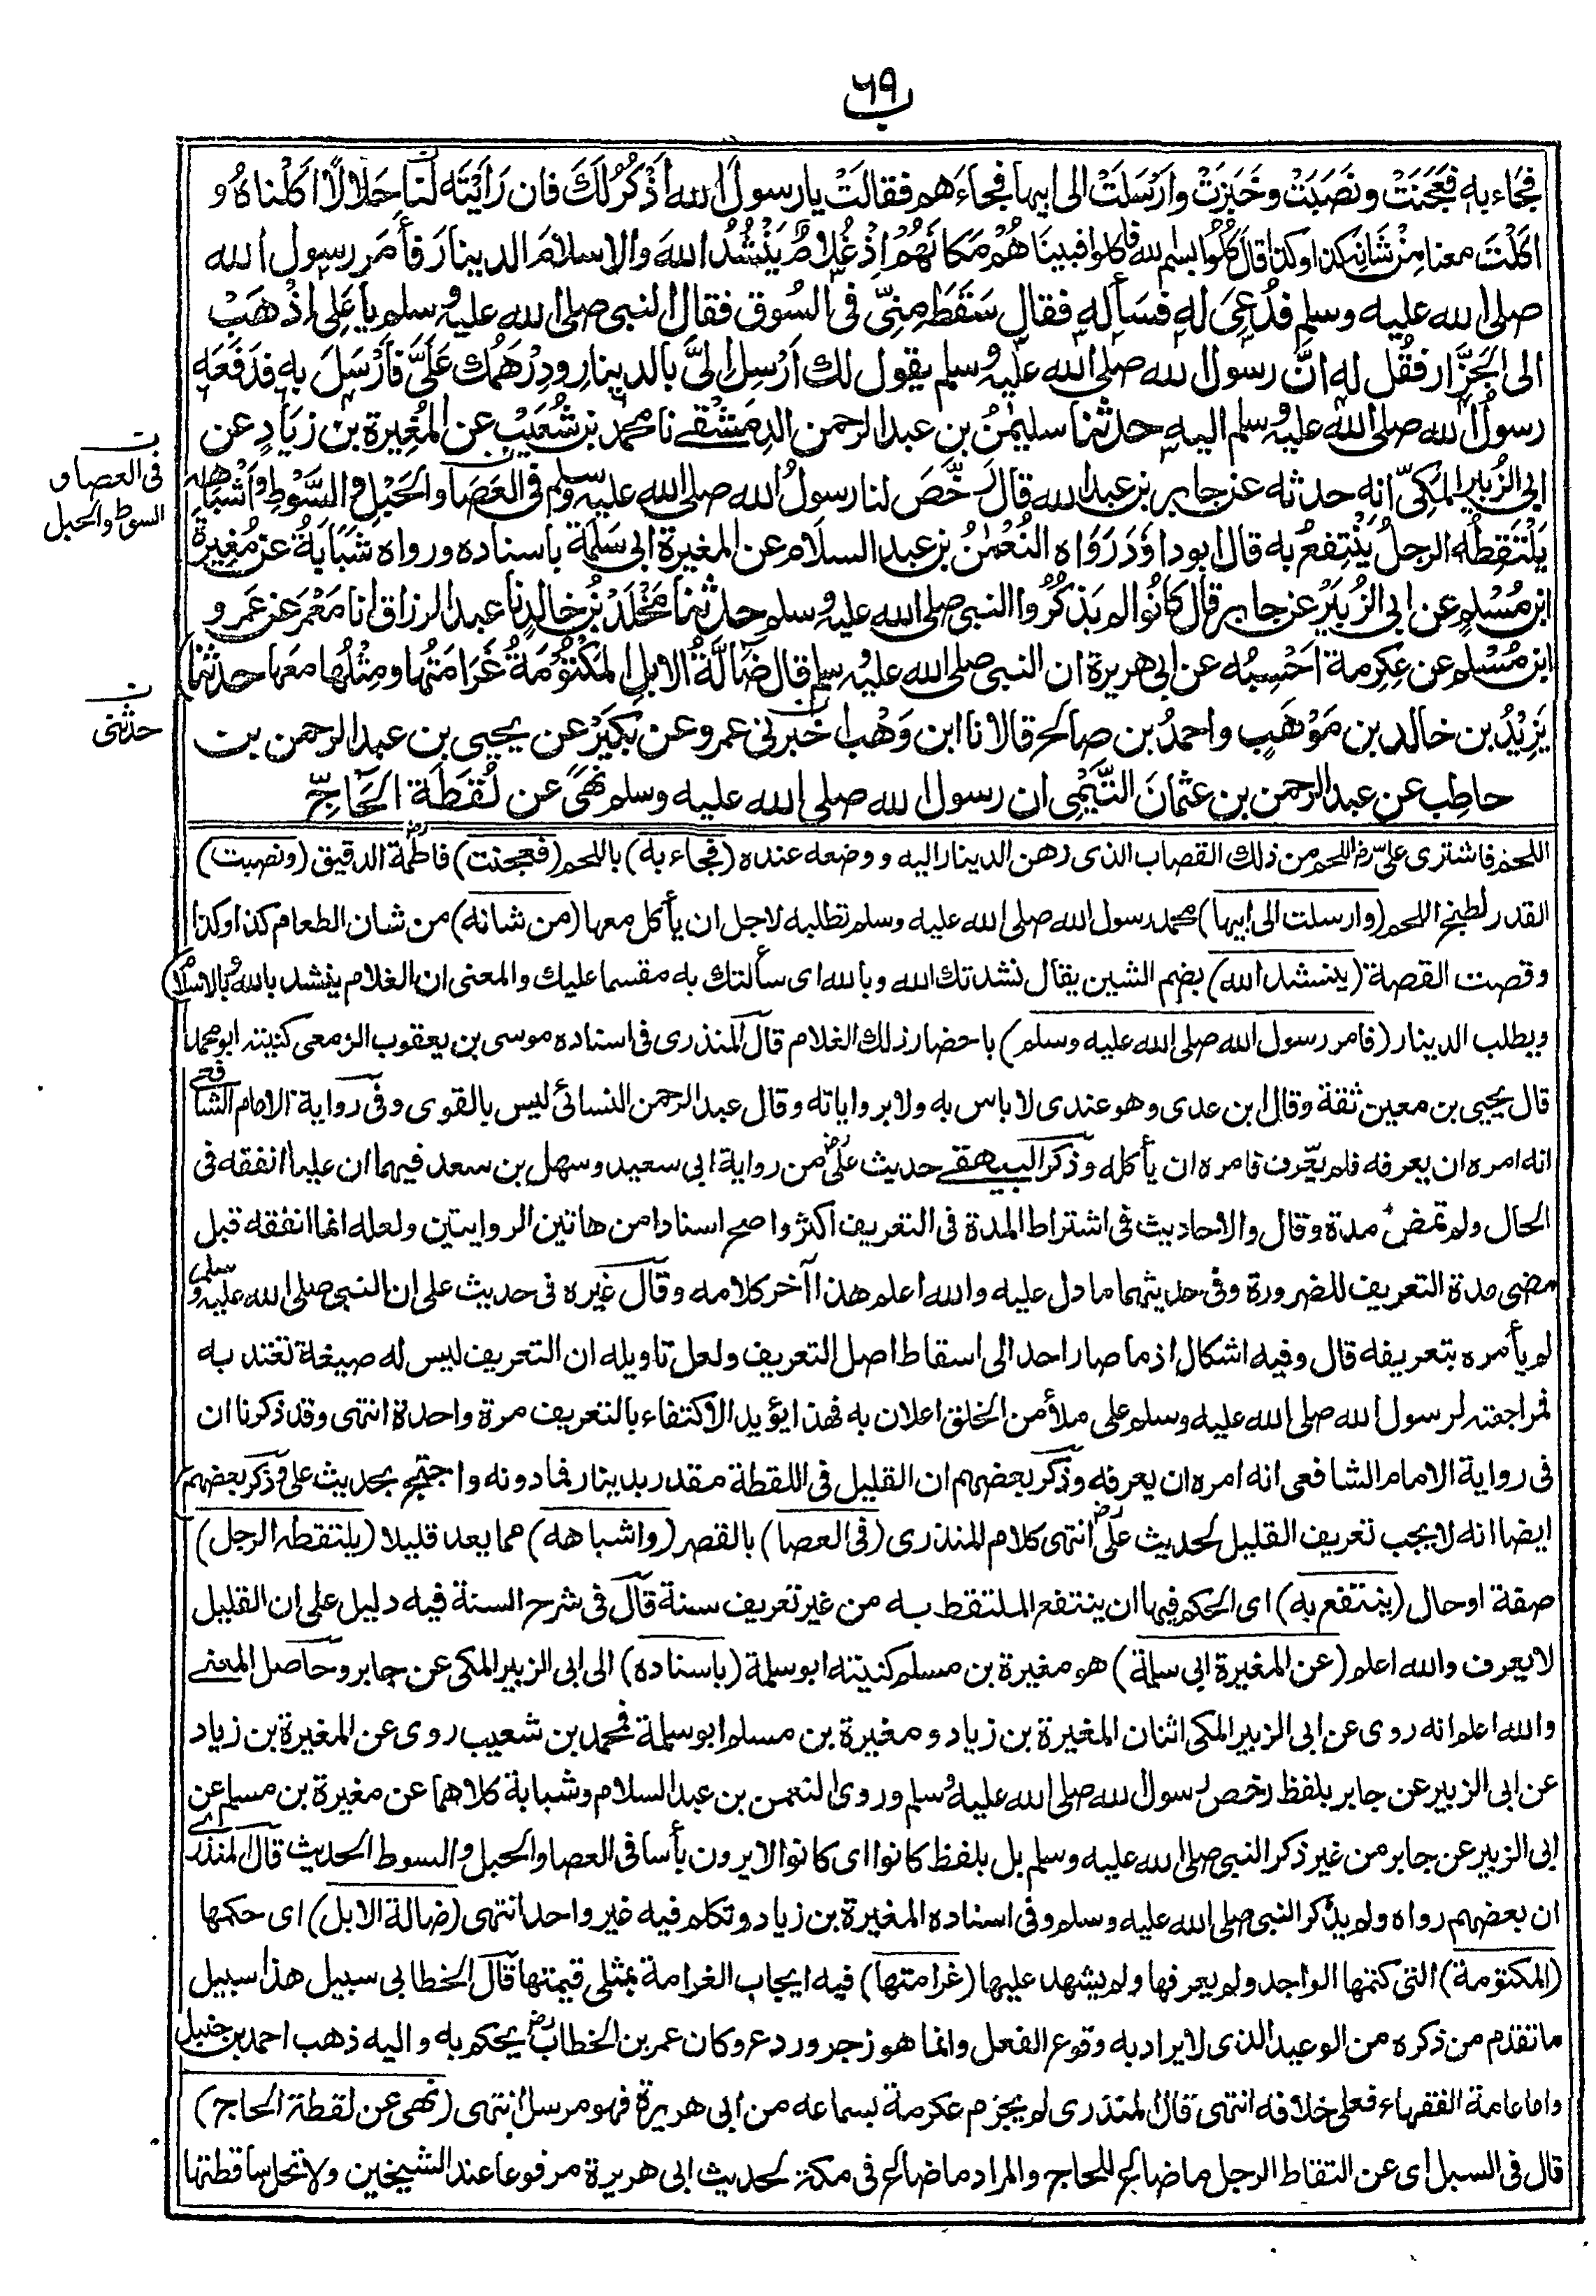 ٦٩
فجاء به فعَجَنَتْ ونَصَبَتْ وخَبَزَتْ وارسَلَتْ الى ابيها فجاءَهم فقالَتْ يا رسولَ الله اَذْكُرُ لَكَ فان رَاَيْتَه لَنَا حَلالاً اكلْناهُ و
اكَلْتَ معنا مِنْ شَانِه كذا وكذا قال كُلُوا بسم الله فاكلوا فبينَا هُمْ مَكانَهُمْ اِذْ غُلامٌ يَنْشُدُ اللهَ والاسلامَ الدينارَ فأمَر رسولُ الله
صلى الله عليه وسلم فدُعِىَ لَه فسَأله فقال سَقَطَ مِنِّى فى السُّوقِ فقال النبى صلى الله عليه وسلم يا عَلِىُّ اذْهَبْ
الى الجَزَّارِ فقُل له اِنَّ رسولَ الله صلى الله عليه وسلم يقول لك اَرْسِل اِلىَّ بالدينارِ ودِرْهَمُك عَلَىَّ فأرْسَلَ به فدَفعَه
رسولُ الله صلى الله عليه وسلم اليه حدثنا سليمٰنُ بن عبد الرحمن الدِمَشْقى نا محمد بن شُعَيْبٍ عن المُغِيرة بن زيَادٍ عن
ابى الزُبيرِ المكىّ انه حدثه عن جابر بن عبد الله قال رَخَّصَ لنا رسولُ الله صلى الله عليه وسلم فى العَصَا والحَبْلِ والسَّوْطِ واَشْبَاهِه
يَلْتَقِطُه الرجلُ يَنْتَفِعُ به قال ابو داوَد رَوَاه النُعْمٰنُ بن عبد السلام عن المغيرة ابى سَلَمَة باسناده ورواه شَبَابَةُ عن مُغِيرة
ابن مُسْلِمٍ عن ابى الزُبَيْرِ عن جابر قال كانُوا لم يَذكُرُوا النبى صلى الله عليه وسلم حدثنا مَخْلَدُ بنُ خالدٍ نا عبد الرزاق انا مَعْمَرٌ عن عَمرو
ابن مُسْلم عن عِكرمة اَحْسِبُه عن ابى هريرة ان النبى صلى الله عليه وسلم قال ضَالَّةُ الابلِ المكْتُوْمَةُ غَرَامَتُها ومِثْلُها معَها حدثنا
يَزِيْدُ بن خالد بن مَوْهَبٍ واحمدُ بن صالح قالا نا ابن وَهْب اخبرنى عمرو عن بُكَيْرٍ عن يحيى بن عبد الرحمن بن
حاطِبٍ عن عبد الرحمن بن عثمانَ التَّيْمِى ان رسول الله صلى الله عليه وسلم نَهَىٰ عن لُقَطَة الحَاجِّ
ن
فى العصا و
السوط والحبل
ن
حدثنى
اللحم فاشترى علىّ رض اللحم من ذلك القصاب الذى رهن الدينار اليه ووضعه عنده (فجاء به) باللحم (فعجنت) فاطمة الدقيق (ونصبت)
القدر لطبخ اللحم (وارسلت الى ابيها) محمد رسول الله صلى الله عليه وسلم تطلبه لاجل ان يأكل معها (من شانه) من شان الطعام كذا وكذا
وقصت القصة (ينشد الله) بضم الشين يقال نشدتك الله وبالله اى سألتك به مقسما عليك والمعنى ان الغلام ينشد بالله وبالاسلام
ويطلب الدينار (فامر رسول الله صلى الله عليه وسلم) باحضار ذلك الغلام قال المنذرى فى اسناده موسى بن يعقوب الزمعى كنيته ابو محمد
قال يحيى بن معين ثقة وقال ابن عدى وهو عندى لا باس به ولا برواياته وقال عبد الرحمن النسائى ليس بالقوى وفى رواية الامام الشافعى
انه امره ان يعرفه فلم يعّرف فامره ان يأكله وذكر البيهقى حديث علىّ رض من رواية ابى سعيد وسهل بن سعد فيهما ان عليا انفقه فى
الحال ولم تمض مدة وقال والاحاديث فى اشتراط المدة فى التعريف اكثر واصح اسنادا من هاتين الروايتين ولعله انما انفقه قبل
مضى مدة التعريف للضرورة وفى حديثهما ما دل عليه والله اعلم هذا آخر كلامه وقال غيره فى حديث على ان النبى صلى الله عليه وسلم
لم يأمره بتعريفه قال وفيه اشكال اذ ما صار احد الى اسقاط اصل التعريف ولعل تاويله ان التعريف ليس له صيغة تغتد به
فمراجعته لرسول الله صلى الله عليه وسلم على ملأ من الخلق اعلان به فهذا يؤيد الاكتفاء بالتعريف مرة واحدة انتهى وقد ذكرنا ان
فى رواية الامام الشافعى انه امره ان يعرفه وذكر بعضهم ان القليل فى اللقطة مقدر بدينار فما دونه واحتج بحديث على وذكر بعضهم
ايضا انه لا يجب تعريف القليل لحديث علىّ رض انتهى كلام المنذرى (فى العصا) بالقصر (واشباهه) مما يعد قليلا (يلتقطه الرجل)
صفة او حال (ينتفع به) اى الحكم فيها ان ينتفع الملتقط به من غير تعريف سنة قال فى شرح السنة فيه دليل على ان القليل
لا يعرف والله اعلم (عن المغيرة ابى سلمة) هو مغيرة بن مسلم كنيته ابو سلمة (باسناده) الى ابى الزبير المكى عن جابر وحاصل المعنى
والله اعلم انه روى عن ابى الزبير المكى اثنان المغيرة بن زياد ومغيرة بن مسلم ابو سلمة فمحمد بن شعيب روى عن المغيرة بن زياد
عن ابى الزبير عن جابر بلفظ رخص رسول الله صلى الله عليه وسلم وروى النعمن بن عبد السلام وشبابة كلاهما عن مغيرة بن مسلم عن
ابى الزبير عن جابر من غير ذكر النبى صلى الله عليه وسلم بل بلفظ كانوا اى كانوا لا يرون بأسا فى العصا والحبل والسوط الحديث قال المنذرى
ان بعضهم رواه ولم يذكر النبى صلى الله عليه وسلم وفى اسناده المغيرة بن زياد وتكلم فيه غير واحد انتهى (ضالة الابل) اى حكمها
(المكتومة) التى كتمها الواجد ولم يعرفها ولم يشهد عليها (غرامتها) فيه ايجاب الغرامة بمثلى قيمتها قال الخطابى سبيل هذا سبيل
ما تقدم من ذكره من الوعيد الذى لا يراد به وقوع الفعل وانما هو زجر وردع وكان عمر بن الخطاب رض يحكم به واليه ذهب احمد بن حنبل
واما عامة الفقهاء فعلى خلافه انتهى قال المنذرى لم يجزم عكرمة بسماعه من ابى هريرة فهو مرسل انتهى (نهى عن لقطة الحاج)
قال فى السبل اى عن التقاط الرجل ما ضاع للحاج والمراد ما ضاع فى مكة لحديث ابى هريرة مرفوعا عند الشيخين ولا تحل ساقطتها